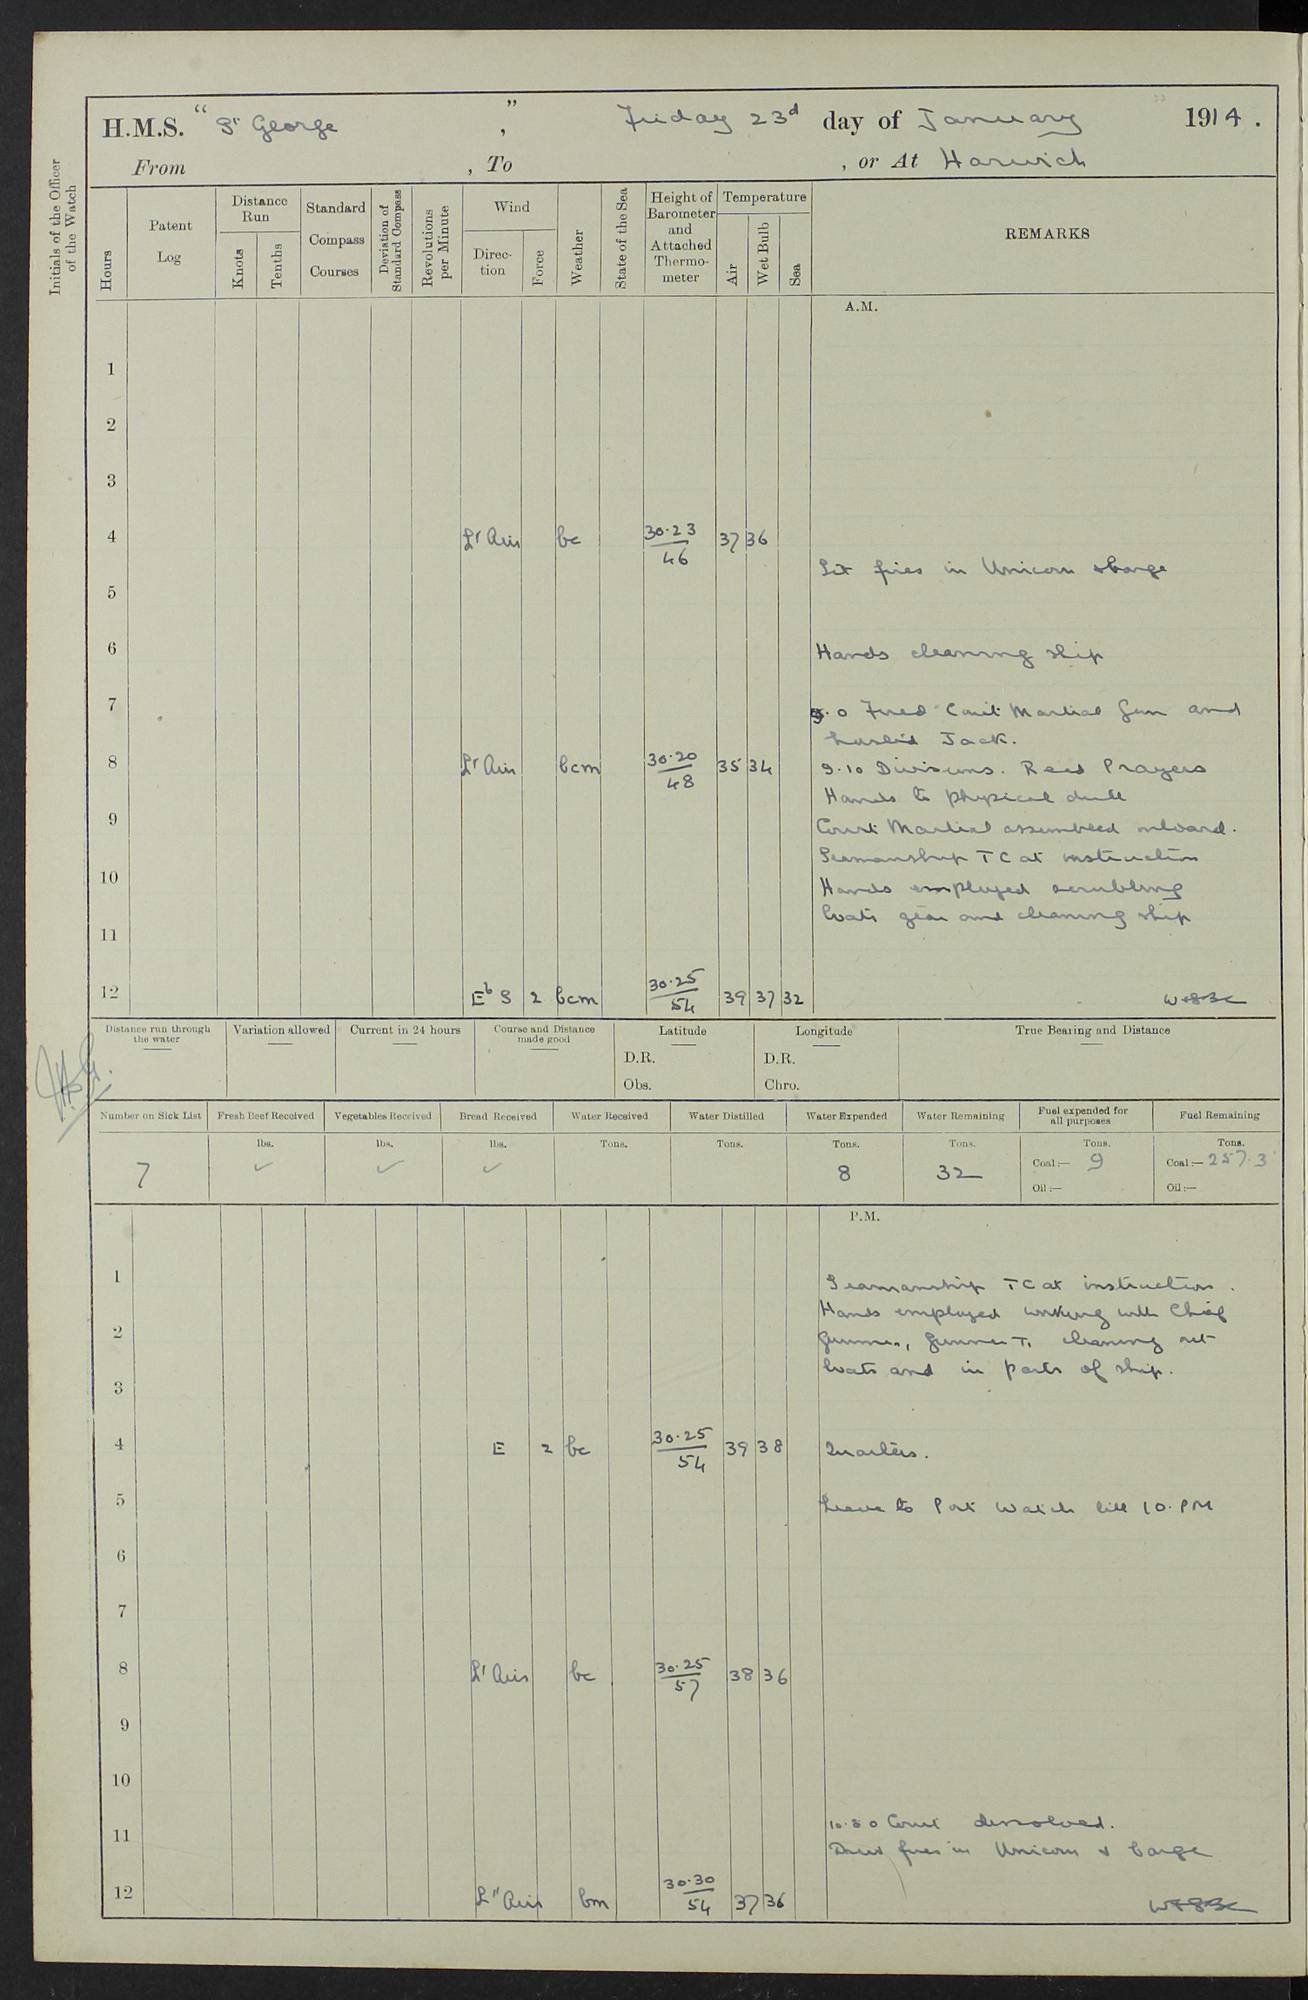 H.M.S. "St George", Friday 23d day of January 1914.
From , To , or At Harwich
Initials of the Officer of the Watch
Hours
Patent Log
Distance Run
Knots
Tenths
Standard Compass Courses
Deviation of Standard Compass
Revolutions per Minute
Wind
Direction
Force
Weather
State of the Sea
Height of Barometer and Attached Thermometer
Temperature
Air
Wet Bulb
Sea
REMARKS
A.M.
1
2
3
4 Lt Airs bc 30.23/46 37 36
Lit fires in Unicorn & barge
5
6 Hands cleaning ship
7
8.0 Fired Court Martial Gun and
hoisted Jack.
8 Lt Airs bcm 30.20/48 35 34
9.10 Divisions. Read Prayers
Hands to physical drill
9 Court Martial assembled onboard.
Seamanship TC at instruction
10 Hands employed scrubbing
boats gear and cleaning ship
11
12 EbS 2 bcm 30.25/54 39 37 32
Distance run through the water
Variation allowed
Current in 24 hours
Course and Distance made good
Latitude
D.R.
Obs.
Longitude
D.R.
Chro.
True Bearing and Distance
Number on Sick List 7
Fresh Beef Received lbs. ✓
Vegetables Received lbs. ✓
Bread Received lbs. ✓
Water Received Tons.
Water Distilled Tons.
Water Expended Tons. 8
Water Remaining Tons. 32
Fuel expended for all purposes Tons. Coal:— 9 Oil:—
Fuel Remaining Tons. Coal:— 257.3 Oil:—
P.M.
1 Seamanship TC at instruction.
Hands employed working with Chief
2 Gunner, Gunner T, cleaning out
boats and in parts of ship.
3
4 E 2 bc 30.25/54 39 38 Quarters.
5 Leave to Port Watch till 10.PM
6
7
8 Lt Airs bc 30.25/57 38 36
9
10
11 10.30 Court dissolved.
Drew fires in Unicorn & barge
12 Lt Airs bm 30.30/54 37 36